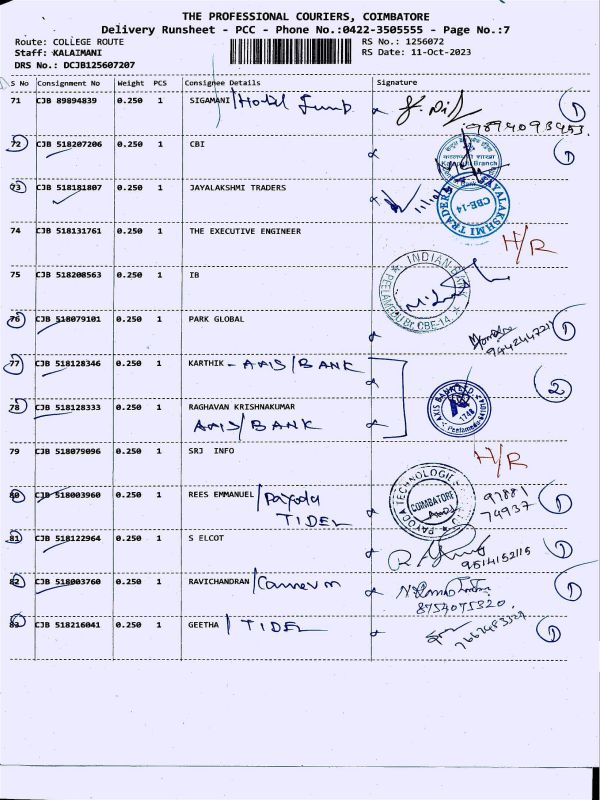 THE PROFESSIONAL COURIERS, COIMBATORE
Delivery Runsheet - PCC - Phone No.:0422-3505555 - Page No.:7
Route: COLLEGE ROUTE RS No.: 1256072
Staff: KALAIMANI RS Date: 11-Oct-2023
DRS No.: DCJB125607207
S No Consignment No Weight PCS Consignee Details Signature
71 CJB 89894839 0.250 1 SIGAMANI / Hotel 1
9894093453
72 CJB 518207206 0.250 1 CBI Branch 1
73 CJB 518181807 0.250 1 JAYALAKSHMI TRADERS JAYALAKSHMI TRADERS CBE-14
74 CJB 518131761 0.250 1 THE EXECUTIVE ENGINEER H/R
75 CJB 518208563 0.250 1 IB INDIAN BANK CBE-14
76 CJB 518079101 0.250 1 PARK GLOBAL 1
77 CJB 518128346 0.250 1 KARTHIK - AXIS / BANK 2
78 CJB 518128333 0.250 1 RAGHAVAN KRISHNAKUMAR AXIS BANK
AXIS / BANK
79 CJB 518079096 0.250 1 SRJ INFO H/R
80 CJB 518003960 0.250 1 REES EMMANUEL / Payoda PAYODA TECHNOLOGIES COIMBATORE 97881 1
TIDEL 74937
81 CJB 518122964 0.250 1 S ELCOT 1
9514152115
82 CJB 518003760 0.250 1 RAVICHANDRAN / 1
8754075320
83 CJB 518216041 0.250 1 GEETHA / TIDEL 1